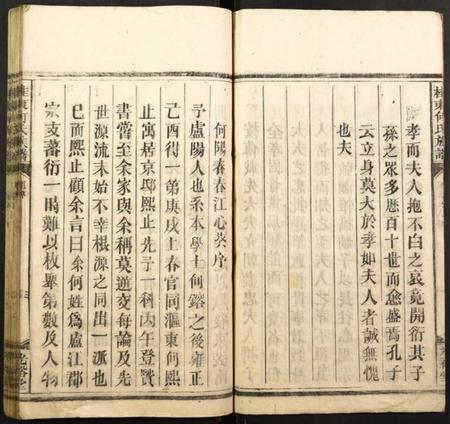 桂東何氏族譜
孝而夫人抱不白之哀竟開衍其子
孫之眾多歷百十世而愈盛焉孔子
云立身莫大於孝如夫人者誠無愧
也夫
何陽春春江心益序
予盧陽人也系本學士何鎔之後雍正
己酉得一第庚戌上春官同漚東何熙
止寓居京邸熙止先予一科丙午登賢
書嘗至余家與余稱莫逆交每論及先
世源流未始不幸根源之同出一派也
已而熙止顧余言曰余何姓為盧江郡
宗支蕃衍一時難以枚舉第數及人物
桂東何氏族譜